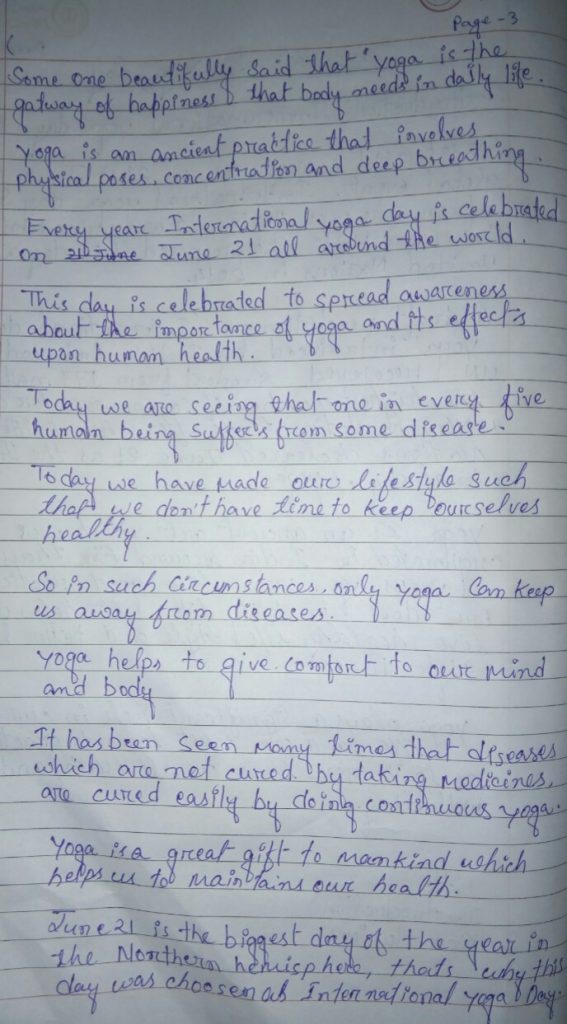 Page-3
Some one beautifully said that "yoga is the
gatway of happiness that body needs in daily life.
Yoga is an ancient practice that involves
physical poses, concentration and deep breathing.
Every year International yoga day is celebrated
on 21 June June 21 all around the world.
This day is celebrated to spread awareness
about the importance of yoga and its effects
upon human health.
Today we are seeing that one in every five
human being suffers from some disease.
Today we have made our lifestyle such
that we don't have time to keep ourselves
healthy.
So in such circumstances, only yoga can keep
us away from diseases.
Yoga helps to give comfort to our mind
and body
It has been seen many times that diseases
which are not cured by taking medicines,
are cured easily by doing continuous yoga.
Yoga is a great gift to mankind which
helps us to maintains our health.
June 21 is the biggest day of the year in
the Northern hemisphere, thats why this
day was choosen as International yoga Day.